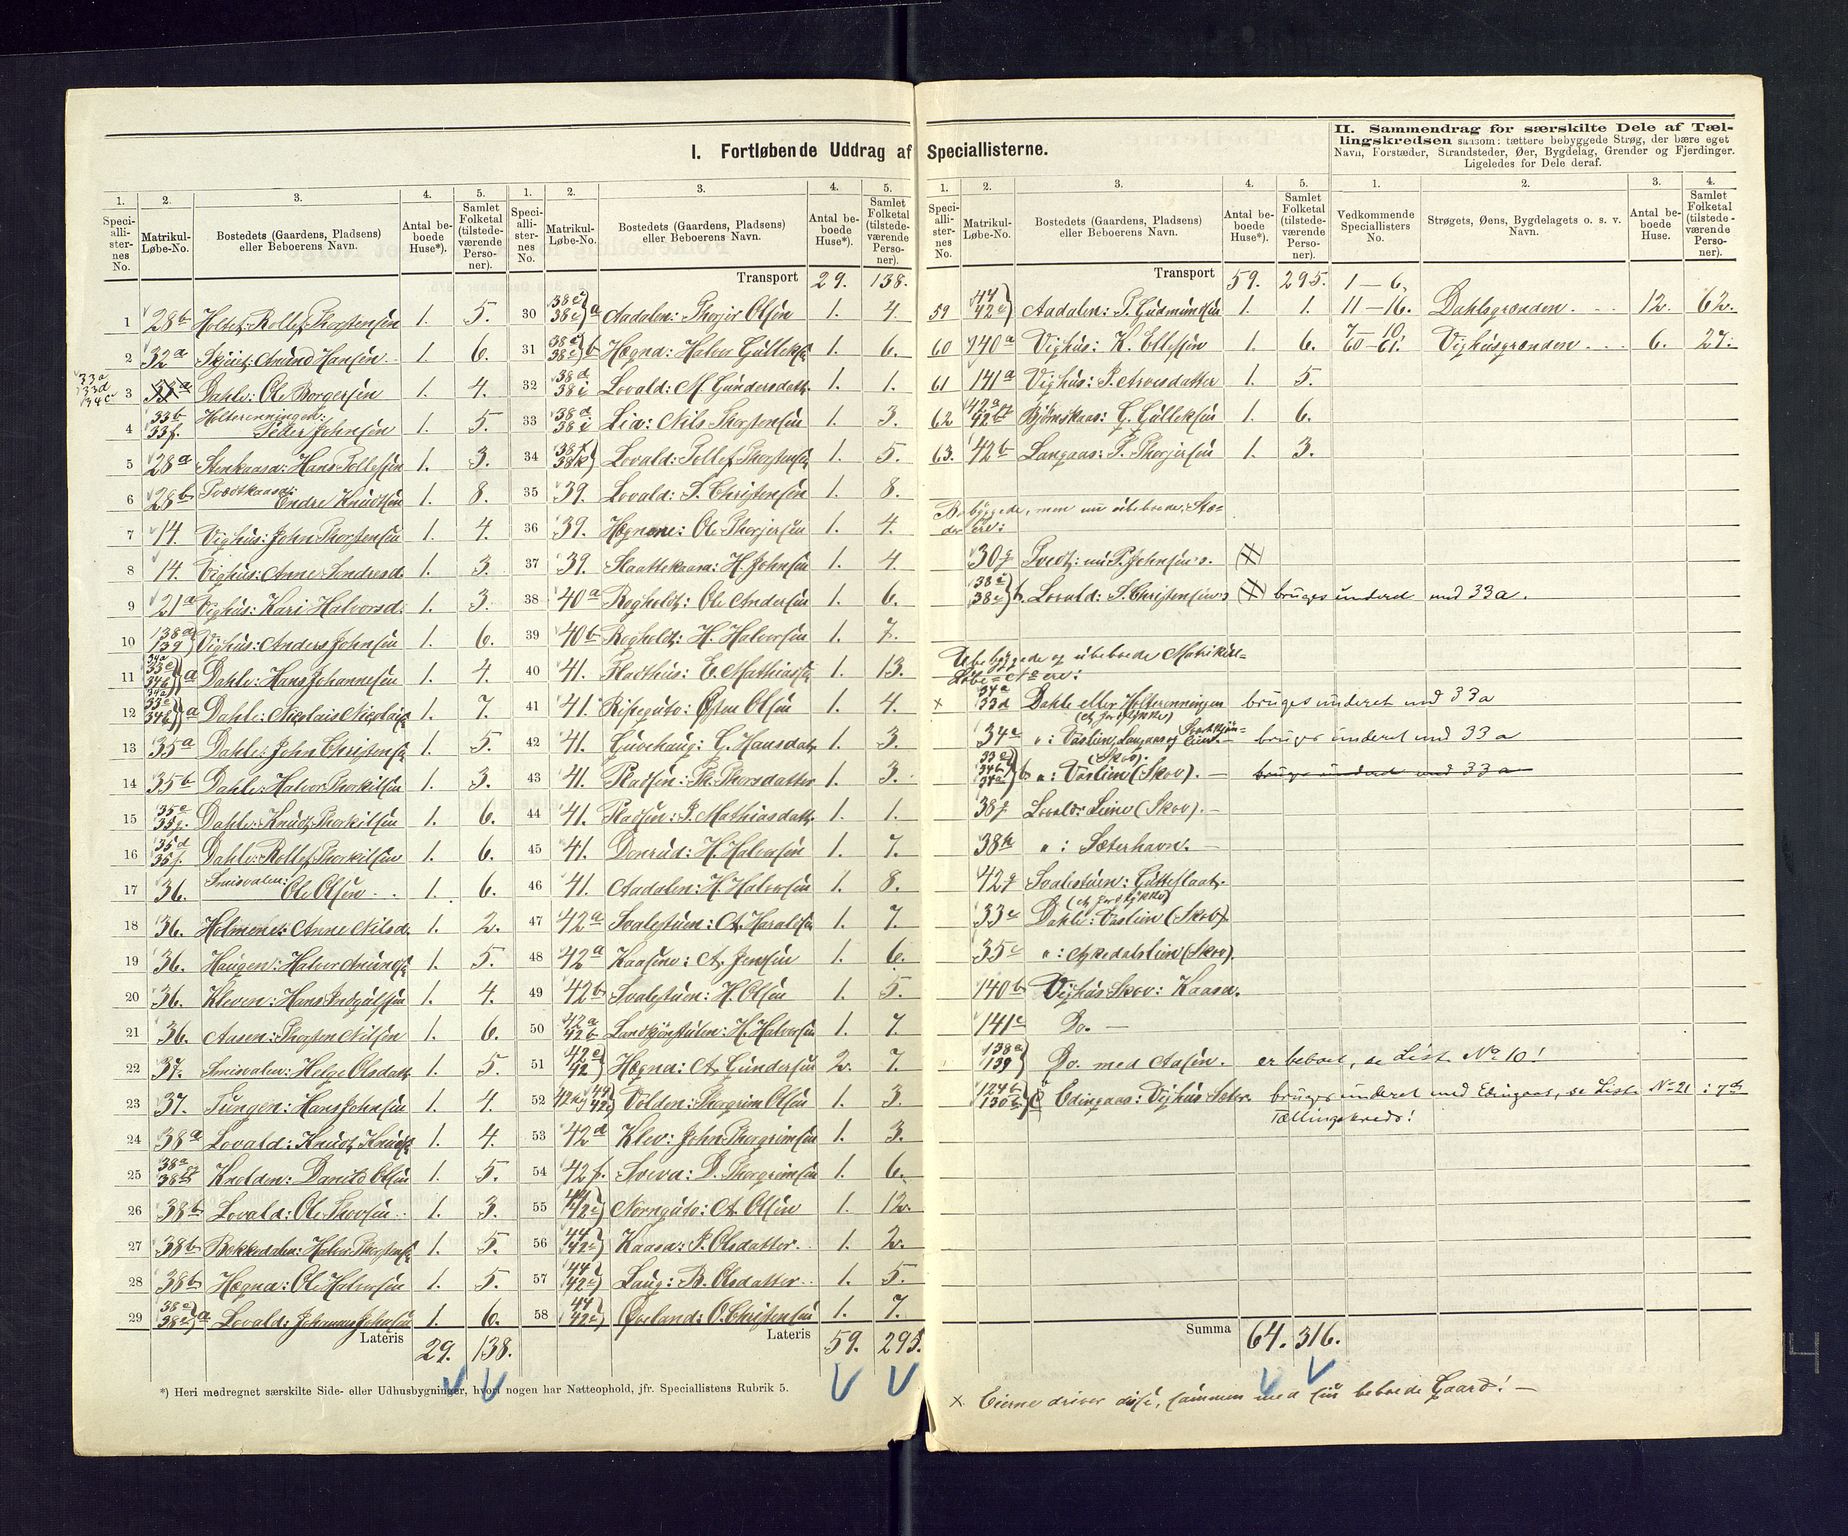 I. Fortløbende Uddrag af Speciallisterne.
1. 2. 3. 4. 5.
Speciallisternes No. Matrikul-Løbe-No. Bostedets (Gaardens, Pladsens) eller Beboerens Navn. Antal beboede Huse*). Samlet Folketal (tilstedeværende Personer).
1 28b Holte: Rollef Thorstensen 1. 5.
2 32a : Anund Hansen 1. 6.
33a 33d 34c 3 Dahle: Ole Borgersen 1. 4.
4 33b 33f. Holterenningen: Peder Johnsen 1. 5.
5 28a Stenkaasa: Hans Tollefsen 1. 3.
6 28b Tvedtkaasa: Endre Knudsen 1. 8.
7 14 Vighus: John Thorstensen 1. 4.
8 14. Vighus: Anne Sondresd. 1. 3.
9 21a Vighus: Kari Halvorsd. 1. 3.
10 138a 139 Vighus: Anders Johnsen 1. 6.
11 34a 33e 34b a Dahle: Hans Johannesen 1. 4.
12 34a 33e 34b a Dahle: Nicolai Nicolais 1. 7.
13 35a Dahle: John Christens 1. 5.
14 35b Dahle: Halvor Thorkilsen 1. 3.
15 35e 35g. Dahle: Knud Thorkilsen 1. 6.
16 35d 35f. Dahle: Rollef Thorkilsen 1. 6.
17 36. Smisvalen: Ole Olsen 1. 6.
18 36. Holmene: Anne Nilsd. 1. 2.
19 36. Haugen: Halvor Anunds 1. 5.
20 36. Kleven: Hans Indgulsen 1. 4.
21 36. Aasen: Thorsten Nilsen 1. 6.
22 37. Smisvalen: Helge Olsdatt. 1. 5.
23 37. Tungen: Hans Johnsen 1. 4.
24 38a Lovald: Knud Knuds 1. 4.
25 38a 38g Knolden: Daniel Olsen 1. 5.
26 38b Lovald: Ole Thovsen 1. 3.
27 38b Bekkedalen: Halvor Thorstens 1. 5.
28 38b Hægna: Ole Halvorsen 1. 5.
29 38c 38e a Lovald: Johannes Johnsen 1. 6.
Lateris 29. 138.
1. 2. 3. 4. 5.
Speciallisternes No. Matrikul-Løbe-No. Bostedets (Gaardens, Pladsens) eller Beboerens Navn. Antal beboede Huse*). Samlet Folketal (tilstedeværende Personer).
Transport 29. 138.
30 38c 38e a Aadalen: Thorjer Olsen 1. 4.
31 38c 38e b Hægna: Halvor Gulleks 1. 6.
32 38d 38i Lovald: M. Gundersdatt. 1. 1.
33 38d 38i Lia: Nils Thorstensen 1. 3.
34 38f 38k Lovald: Tollef Thorstens 1. 5.
35 39. Lovald: S. Christensen 1. 8.
36 39. Hægnene: Ole Thorjersen 1. 4.
37 39. Slaattekaasa: H. Johnsen 1. 4.
38 40a Rogholdt: Ole Andersen 1. 6.
39 40b Rogholdt: H. Halvorsen 1. 7.
40 41. Pladthus: E. Mathias 1. 13.
41 41. Ripeguto: Østen Olsen 1. 4.
42 41. Guvehaug: G. Hansdat. 1. 3.
43 41. Pladsen: Th. Thorsdatter 1. 3.
44 41. Pladsen: J. Mathiasdatt. 1. 1.
45 41. Donrud: H. Halvorsen 1. 7.
46 41. Aadalen: H. Halvorsen 1. 8.
47 42a Svalestuen: A. Haralds 1. 7.
48 42a Kaasene: A. Jensen 1. 6.
49 42b Svalestuen: H. Olsen 1. 5.
50 42a 42b Landkjønstulen: H. Halvorsen 1. 7.
51 42c 42 Hægna: A. Gundersen 2. 7.
52 Volden: Thorgrim Olsen 1. 3.
53 42d Klev: John Thorgrimsen 1. 3.
54 42f. Sveva: D. Thorgrimsen 1. 6.
55 44 42e Nornguto: A. Olsen 1. 12.
56 44 42e Kaasa: J. Olsdatter 1. 2.
57 44 42e Laug: B. Olsdatter 1. 5.
58 44 42e Øveland: O. Christensen 1. 7.
Lateris 59. 295.
*) Heri medregnet særskilte Side- eller Udhusbygninger, hvori nogen har Natteophold, jfr. Speciallistens Rubrik 5.
1. 2. 3. 4. 5.
Speciallisternes No. Matrikul-Løbe-No. Bostedets (Gaardens, Pladsens) eller Beboerens Navn. Antal beboede Huse*). Samlet Folketal (tilstedeværende Personer).
Transport 59. 295.
59 44 42e Aadalen: T. Gudmundsen 1. 1.
60 140a Vighus: K. Ellefsen 1. 6.
61 141a Vighus: J. Arvesdatter 1. 5.
62 42a Bjørnskaas: G. Gulleksen 1. 6.
63. 42b Langaas: T. Thorjersen 1. 3.
Bebyggede, men nu ubeboede, Steder ere:
30g Tvedt: nu P. Johnsen's.
38c 38e b. Lovald: S. Christensen's bruges underet med 33a.
Ubebyggede og ubeboede Matrikul-Løbe-No ere:
x 34a 33d Dahle eller Holterenningen (et Jordstykke) bruges underet med 33a
34c ": Vaslien, Langaas og (Skov). bruges underet med 33a
33e 34b 34a b ": Vaslien (Skov). — bruges underet med 33a
38g. Lovald: Leine (Skov). —
38h ": Sæterhavn. —
42g Svalestuen: Gutteslaat. (et Jordstykke)
33c Dahle: Vaslien (Skov).
35c ": Askedalslien (Skov).
140b Vighus Skov: Kaasa.
141c Do. —
138a 139 Do. med Aasen. er beboet, se List No 10!
124b 130b Edingaas: Vighus Sæter. bruges underet med Edingaas, se Liste No 21 i 7de Tællingskreds!
Summa 64. 316.
x Eierne driver disse, sammen med sin beboede Gaard! —
II. Sammendrag for særskilte Dele af Tællingskredsen saasom: tættere bebyggede Strøg, der bære eget Navn, Forstæder, Strandsteder, Øer, Bygdelag, Grender og Fjerdinger. Ligeledes for Dele deraf.
1. 2. 3. 4.
Vedkommende Speciallisters No. Strøgets, Øens, Bygdelagets o. s. v. Navn. Antal beboede Huse. Samlet Folketal (tilstedeværende Personer).
1—6.
11—16. Dahlsgrænden. 12. 62.
7—10. 60—61. Vighusgrænden 6. 27.